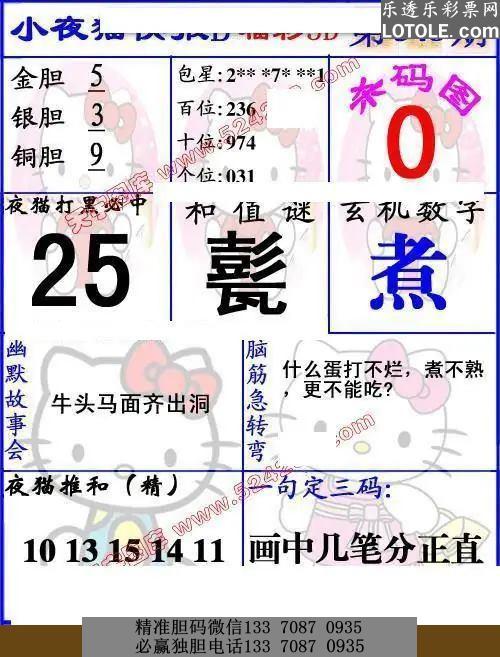 乐透乐彩票网
LOTOLE.COM
小夜猫快报D
福彩3D
第
期
金胆 5
银胆 3
铜胆 9
包星：2** *7* **1
百位：236
十位：974
个位：031
杀码图
0
夜猫打黑必中
25
和值谜
玄机数字
煮
幽默故事会
牛头马面齐出洞
脑筋急转弯
什么蛋打不烂，煮不熟
，更不能吃？
夜猫推和（精）
10 13 15 14 11
一句定三码：
画中几笔分正直
精准胆码微信133 7087 0935
必赢独胆电话133 7087 0935